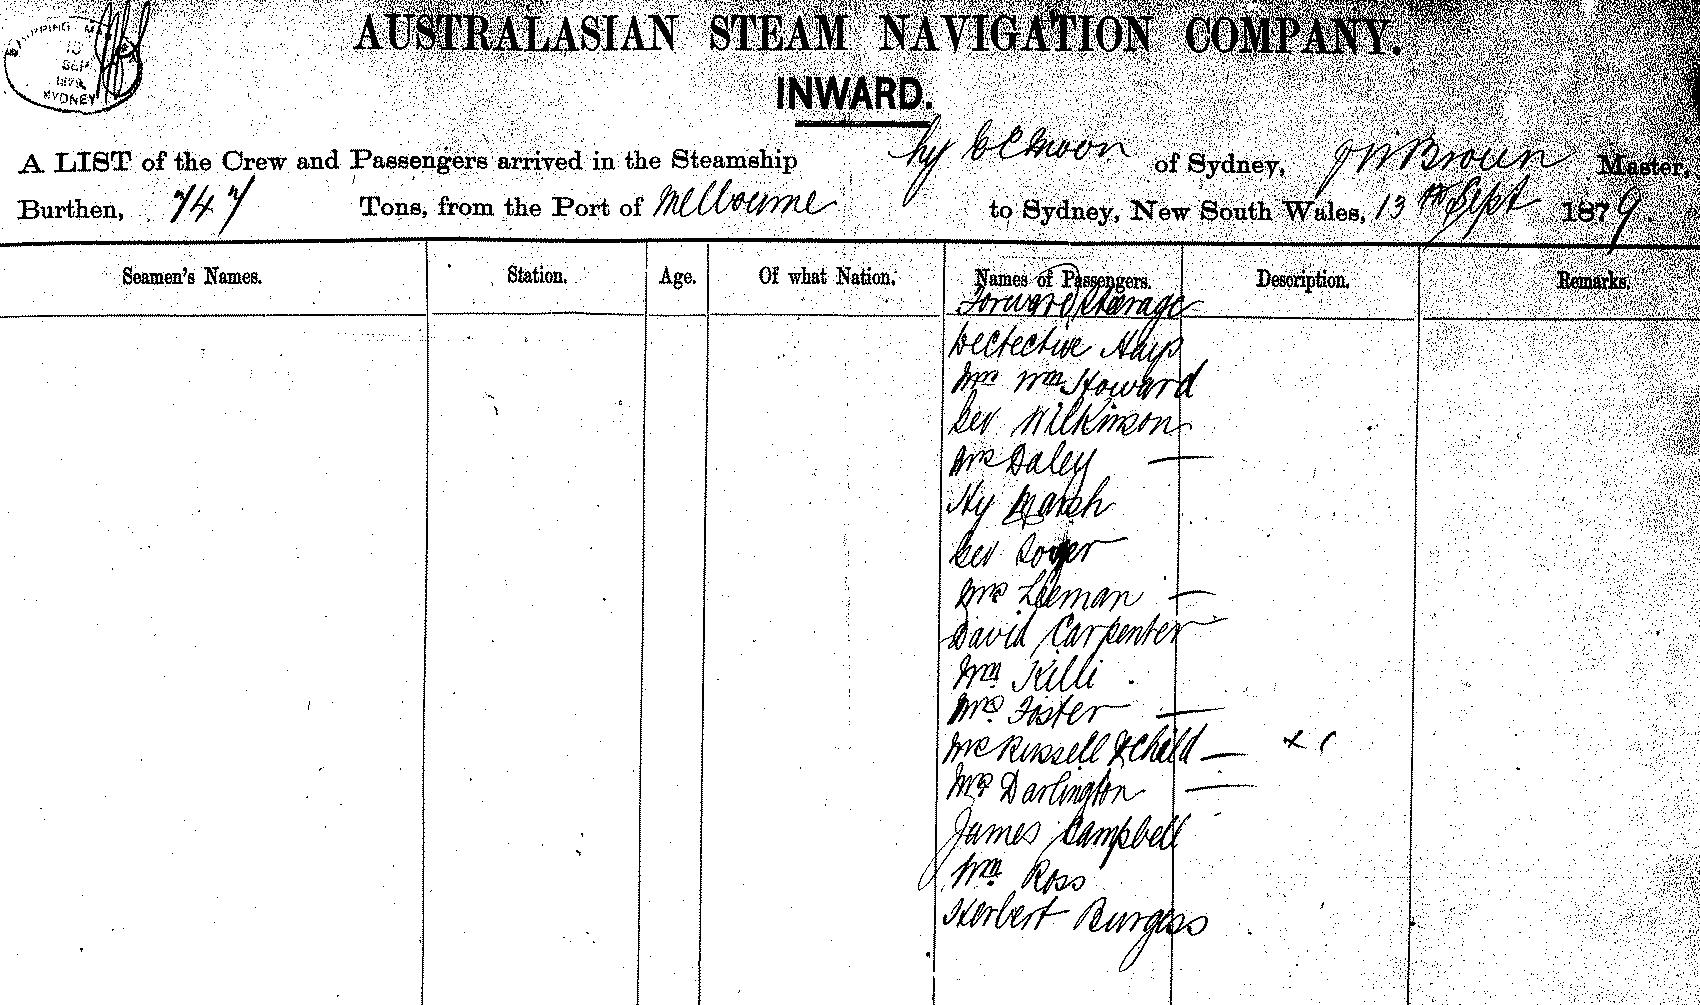 SHIPPING MA
13
SEP
1879
SYDNEY
AUSTRALASIAN STEAM NAVIGATION COMPANY.
INWARD.
A LIST of the Crew and Passengers arrived in the Steamship of Sydney, Brown Master,
Burthen, 747 Tons, from the Port of Melbourne to Sydney, New South Wales, 13th Sept 1879.
Seamen's Names. Station. Age. Of what Nation. Names of Passengers. Description. Remarks.
Forward Steerage
Dectective Hays
Wm Howard
Geo Wilkinson
Mrs Daley —
Hy Marsh
Geo
Mrs Leeman —
David Carpenter
Wm Killi
Mrs Foster —
Mrs Russell & Child —
Mrs Darlington —
James Campbell
Wm Ross
Herbert Burgess